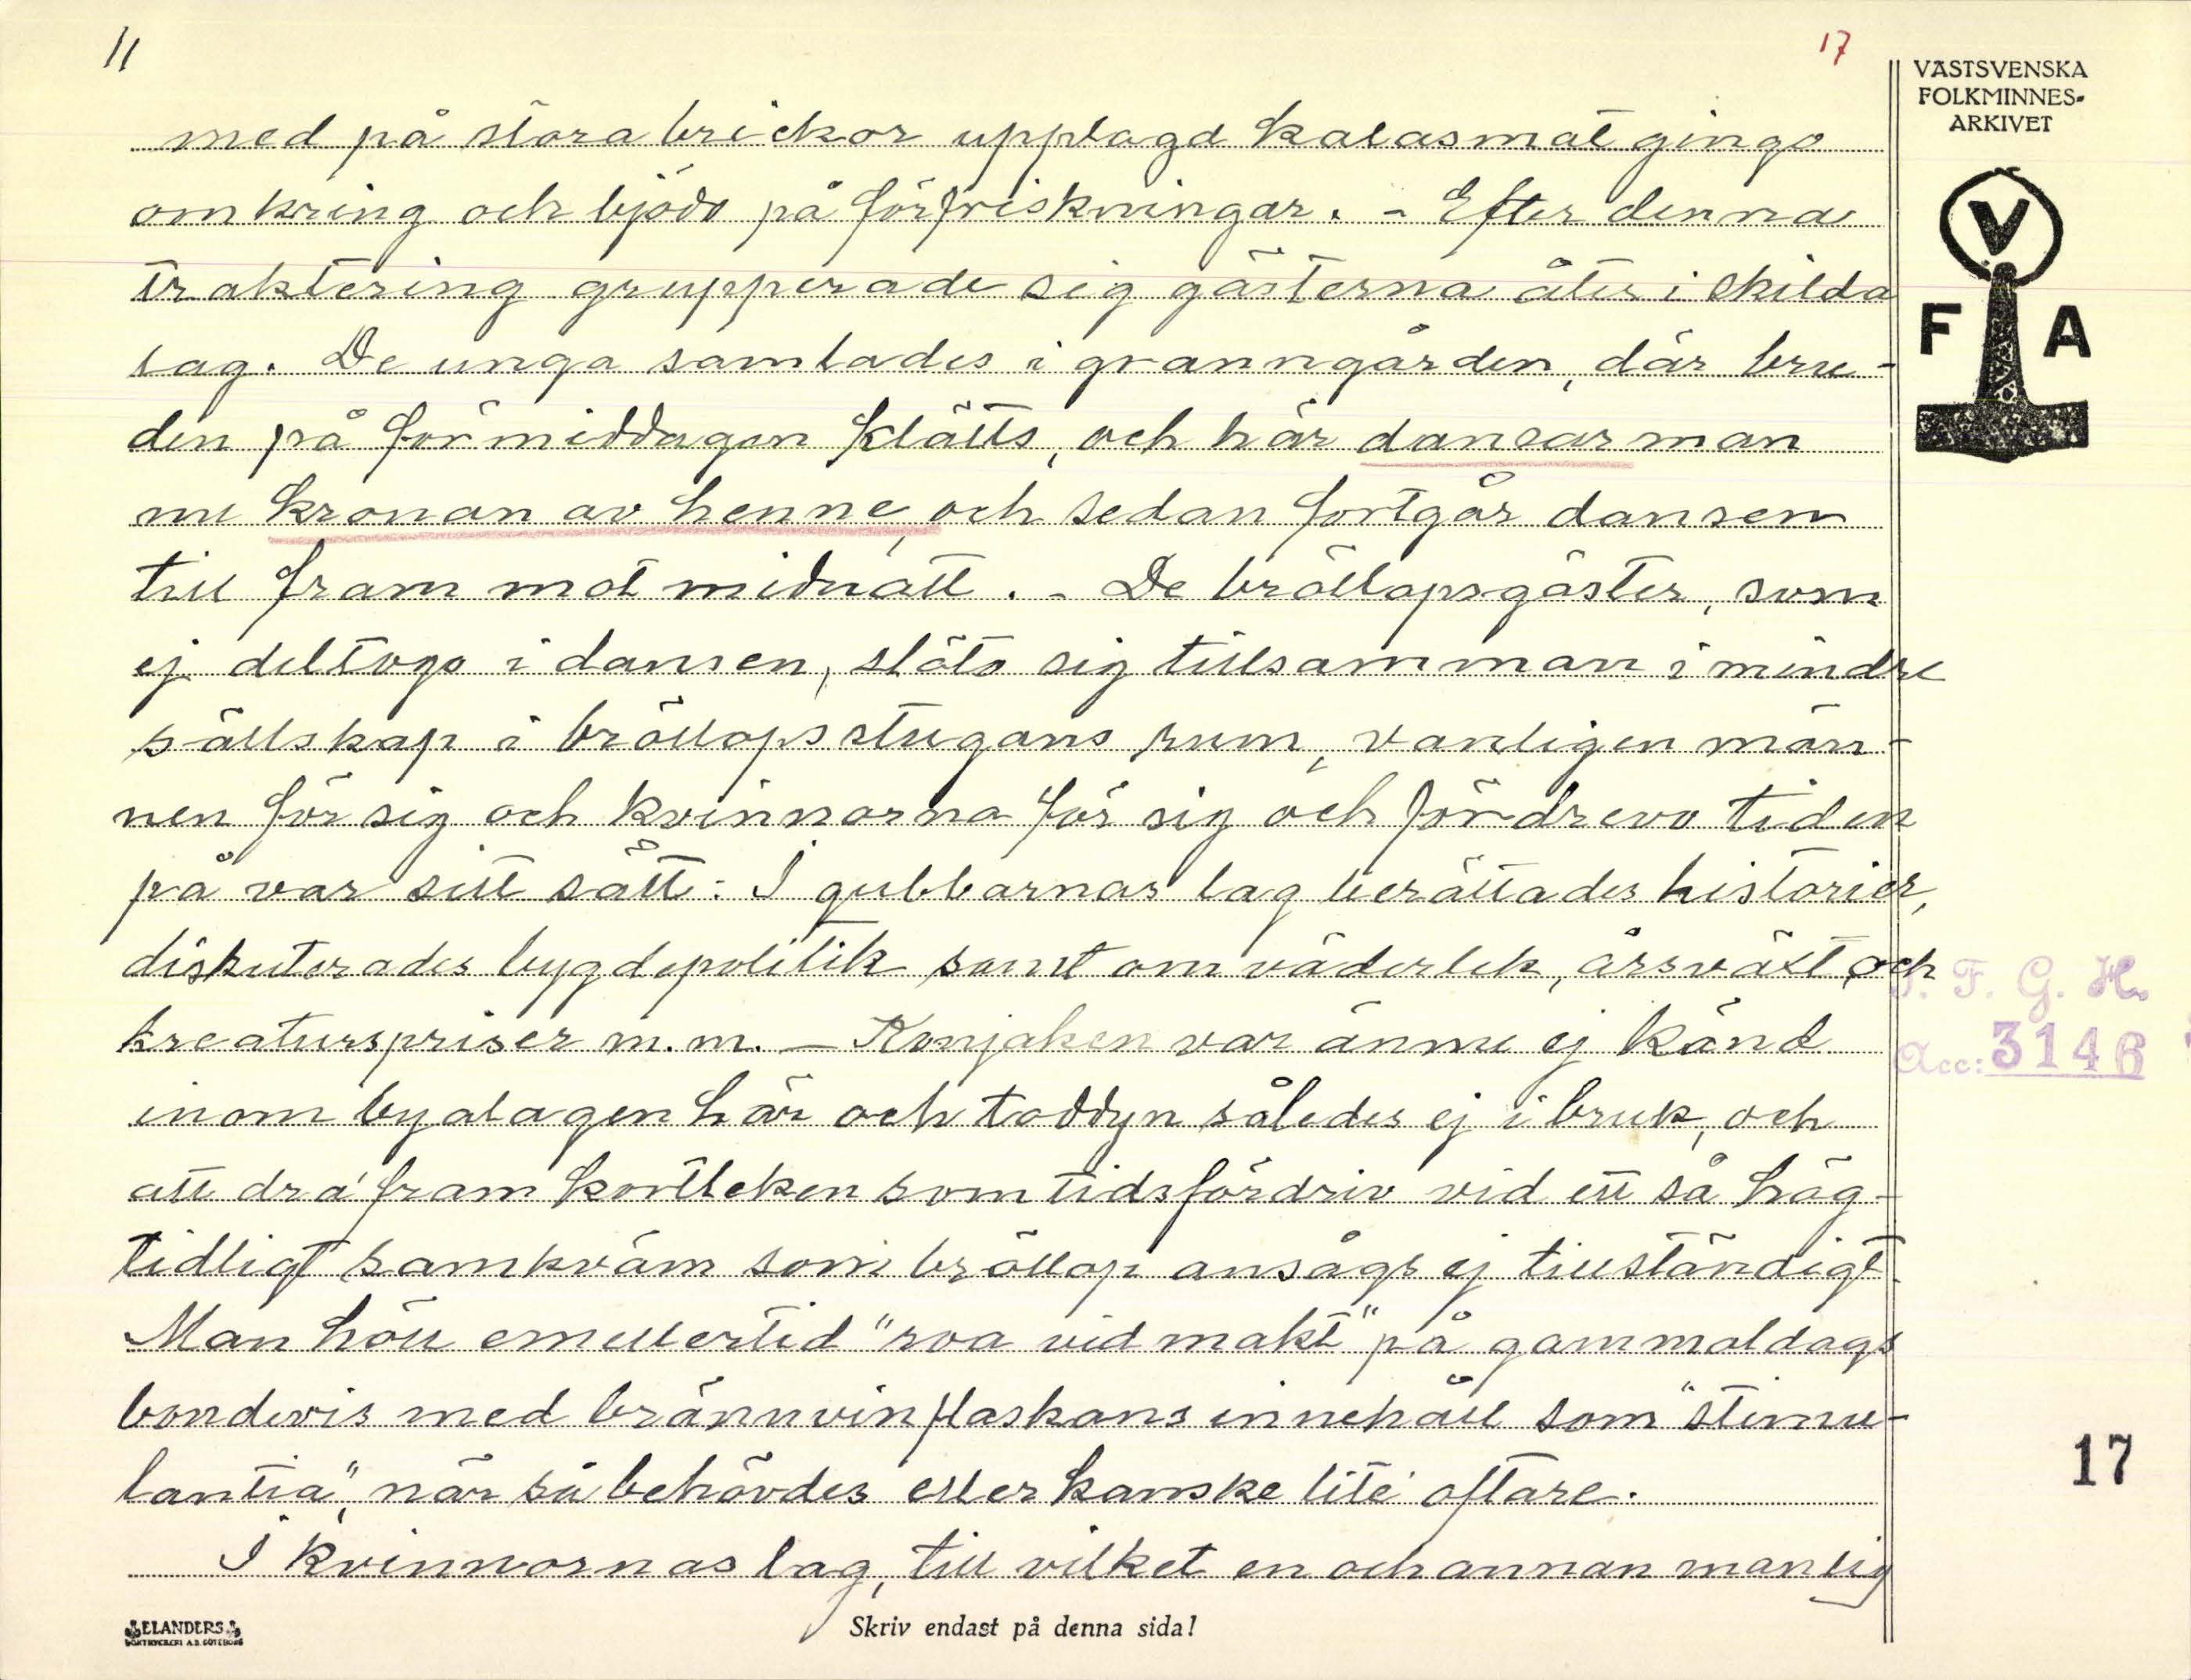 11
17
VÄSTSVENSKA
FOLKMINNES-
ARKIVET
V
F A
med på stora brickor upplagd kalasmat gingo
omkring och bjödo på förfriskningar. - Efter denna
traktering grupperade sig gästerna åter i skilda
lag. De unga samlades i granngården, där bru-
den på förmiddagen klätts, och här dansar man
nu kronan av henne, och sedan fortgår dansen
till fram mot midnatt. - De bröllopsgäster, som
ej deltogo i dansen, slöto sig tillsamman i mindre
sällskap i bröllopsstugans rum, vanligen män-
nen för sig och kvinnorna för sig och fördrevo tiden
på var sitt sätt: I gubbarnas lag berättades historier,
diskuterades bygdepolitik samt om väderlek, årsväxt och
kreaturspriser m.m. – Konjaken var ännu ej känd
inom byalagen här och toddyn således ej i bruk, och
att dra' fram kortleken som tidsfördriv vid ett så hög-
tidligt samkväm som bröllop ansågs ej tillständigt.
Man höll emellertid "roa vid makt" på gammaldags
bondevis med brännvinflaskans innehåll som "stimu-
lantia", när så behövdes eller kanske lite' oftare.
I kvinnornas lag, till vilket en och annan manlig
I. F. G. H.
Acc: 3146
17
ELANDERS
BOKTRYCKERI A.B. GÖTEBORG
Skriv endast på denna sida!